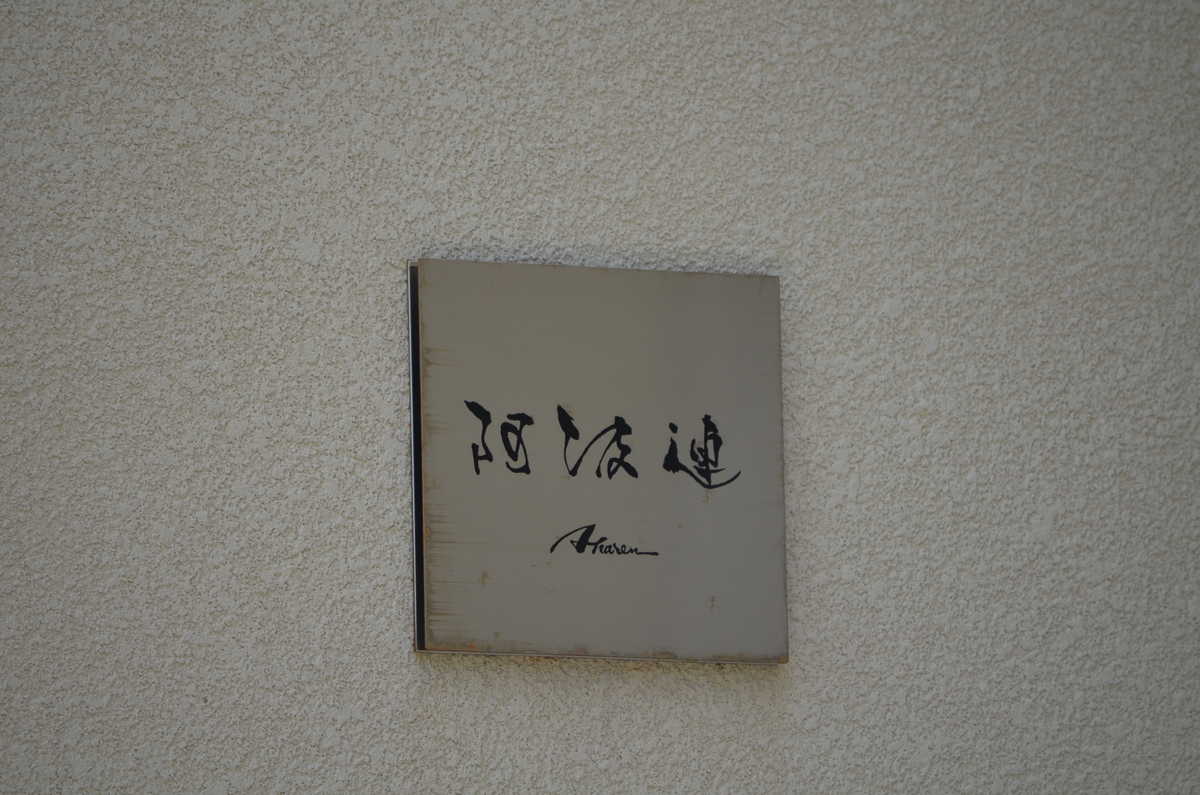 阿波連
Aharen